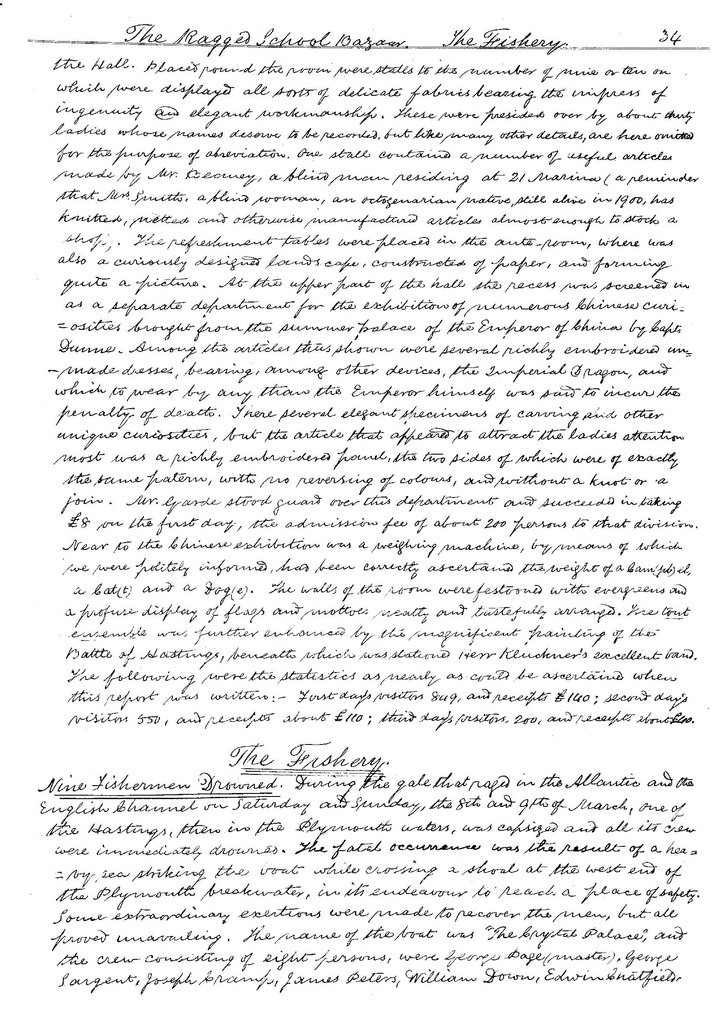 The Ragged School Bazaar. The Fishery. 34
the Hall. Placed round the room were stalls to the number of nine or ten on
which were displayed all sorts of delicate fabrics bearing the impress of
ingenuity and elegant workmanship. These were presided over by about thirty
ladies whose names deserve to be recorded, but like many other details, are here omitted
for the purpose of abreviation. One stall contained a number of useful articles
made by Mr. Kearney, a blind man residing at 21 Marina (a reminder
that Mrs Smith, a blind woman, an octogenarian native, still alive in 1900, has
knitted, netted and otherwise manufactured articles almost enough to stock a
shop. The refreshment tables were placed in the ante-room, where was
also a curiously designed landscape, constructed of paper, and forming
quite a picture. At the upper part of the hall the recess was screened in
as a separate department for the exhibition of numerous Chinese curi=
=osities brought from the summer palace of the Emperor of China by Capt.
Dunne. Among the articles thus shown were several richly embroidered un-
-made dresses, bearing, among other devices, the Imperial Dragon, and
which to wear by any than the Emperor himself was said to incur the
penalty of death. There several elegant specimens of carving and other
unique curiosities, but the article that appeared to attract the ladies attention
most was a richly embroidered panel, the two sides of which were of exactly
the same patern, with no reversing of colours, and without a knot or a
join. Mr. Garde stood guard over this department and succeded in taking
£8 on the first day, the admission fee of about 200 persons to that division.
Near to the Chinese exhibition was a weighing machine, by means of which
we were politely informed, has been correctly ascertained the weight of a
a Cat(t) and a Dog(e). The walls of the room were festooned with evergreens and
a profuse display of flags and mottoes neatly and tastefully arranged. The tout
ensemble was further enhanced by the magnificent painting of the
Battle of Hastings, beneath which was stationed Herr Kluckner's excellent band.
The following were the statistics as nearly as could be ascertained when
this report was written:- First day's visitors 849, and receipts £140; second day's
visitors 550, and receipts about £110; third day's visitors, 200, and receipts about
The Fishery.
Nine Fishermen Drowned. During the gale that raged in the Atlantic and the
English Channel on Saturday and Sunday, the 8th and 9th of March, one of
the Hastings, then in the Plymouth waters, was capsized and all its crew
were immediately drowned. The fatal occurrence was the result of a hea=
=vy sea striking the boat while crossing a shoal at the west end of
the Plymouth breakwater, in its endeavour to reach a place of safety.
Some extraordinary exertions were made to recover the men, but all
proved unavailing. The name of the boat was "The Crystal Palace", and
the crew consisting of eight persons, were George Page (master), George
Sargent, Joseph Cramp, James Peters, William Down, Edwin Chatfield